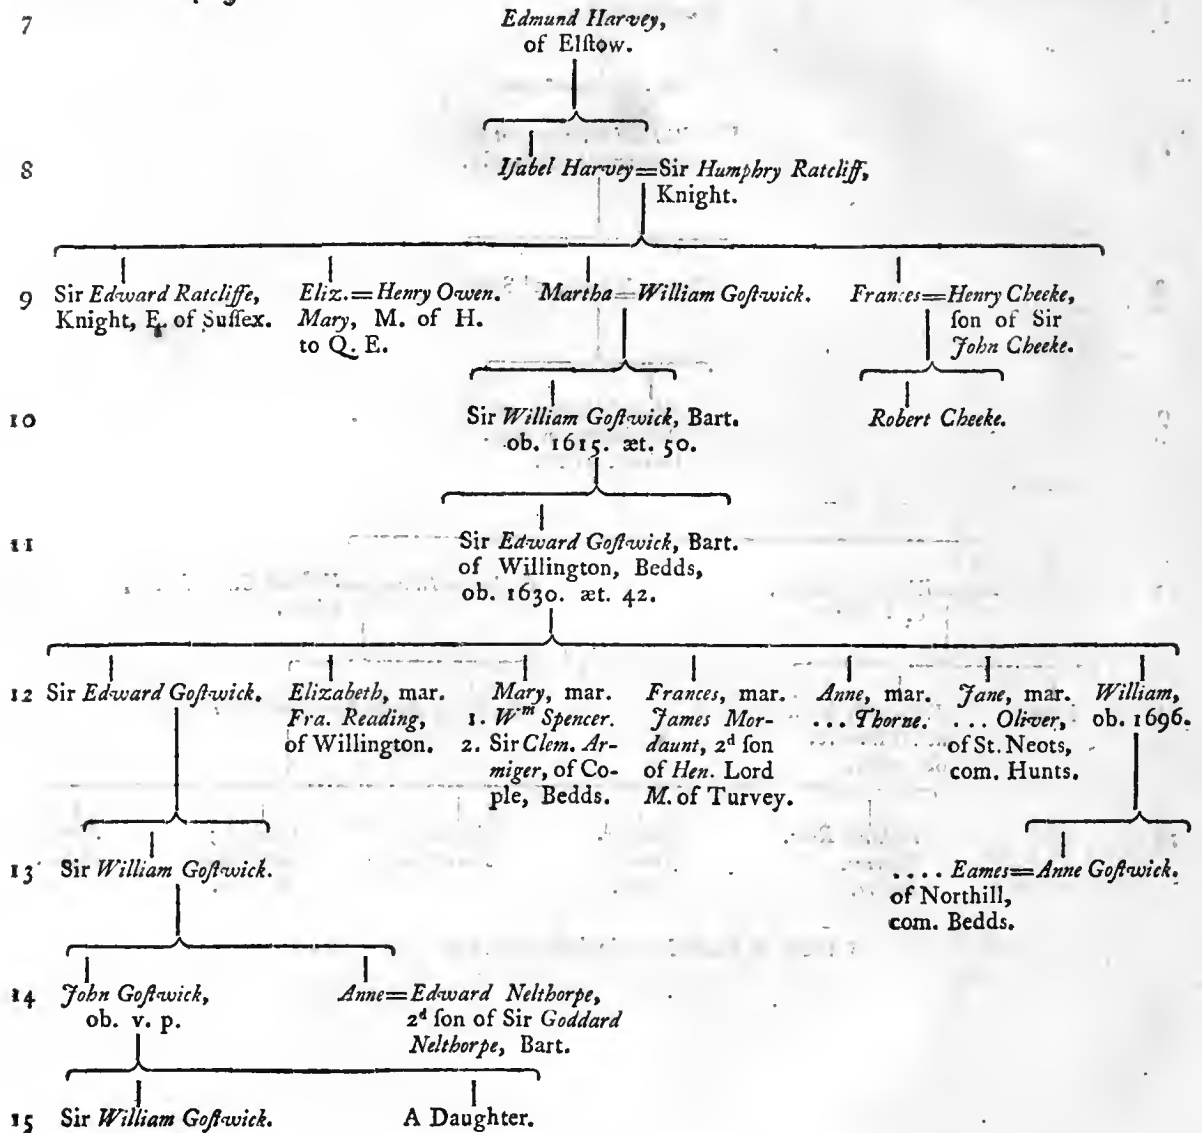 7
Edmund Harvey,
of Elſtow.
8
Iſabel Harvey=Sir Humphry Ratcliff,
Knight.
9
Sir Edward Ratcliffe,
Knight, E. of Suſſex.
Eliz.=Henry Owen.
Mary, M. of H.
to Q. E.
Martha=William Goſtwick.
Frances=Henry Cheeke,
ſon of Sir
John Cheeke.
10
Sir William Goſtwick, Bart.
ob. 1615. æt. 50.
Robert Cheeke.
11
Sir Edward Goſtwick, Bart.
of Willington, Bedds,
ob. 1630. æt. 42.
12
Sir Edward Goſtwick.
Elizabeth, mar.
Fra. Reading,
of Willington.
Mary, mar.
1. Wm Spencer.
2. Sir Clem. Ar-
miger, of Co-
ple, Bedds.
Frances, mar.
James Mor-
daunt, 2d ſon
of Hen. Lord
M. of Turvey.
Anne, mar.
... Thorne.
Jane, mar.
... Oliver,
of St. Neots,
com. Hunts.
William,
ob. 1696.
13
Sir William Goſtwick.
.... Eames=Anne Goſtwick.
of Northill,
com. Bedds.
14
John Goſtwick,
ob. v. p.
Anne=Edward Nelthorpe,
2d ſon of Sir Goddard
Nelthorpe, Bart.
15
Sir William Goſtwick.
A Daughter.